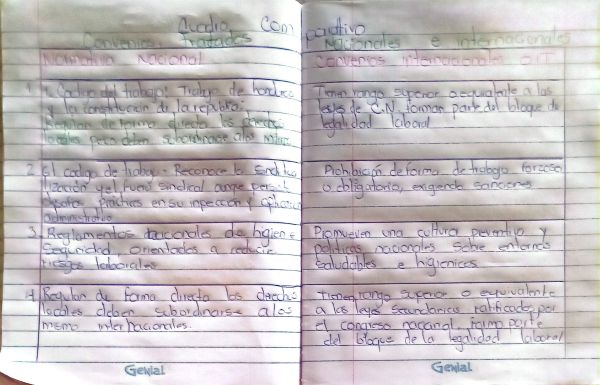 Cuadro Comparativo
Convenios Tratados Nacionales e internacionales
Normativa Nacional
1 1. Codigo del trabajo: Trabajo de hondure
y la constitución de la republica.
de forma directa los derechos
locales pero deben subordinarse a los
2 El codigo de trabajo: Reconoce la sindica
lización y el fuero sindical aunque persist
practicos en su inpección y
administrativo
3. Reglamentos nacionales de higiene
seguridad orientados a reducir
riesgos laborales
4 Regulan de forma directa los derechos
locales deben subordinarse a los
mismo internacionales.
Convenios internacionales OIT
Tienen rango superior o equivalente a las
leyes de C.N. forman parte del bloque de
legalidad laboral
Prohibición de forma de trabajo forzoso
o obligatorio, exigendo sanciones
Promueven una cultura preventiva y
politicas nacionales sobre entornos
saludables e higienicos
Tienen rango superior o equivalente
a las leyes secundarias ratificados por
el congreso nacional, forma parte
del bloque de la legalidad laboral
Genial
Genial